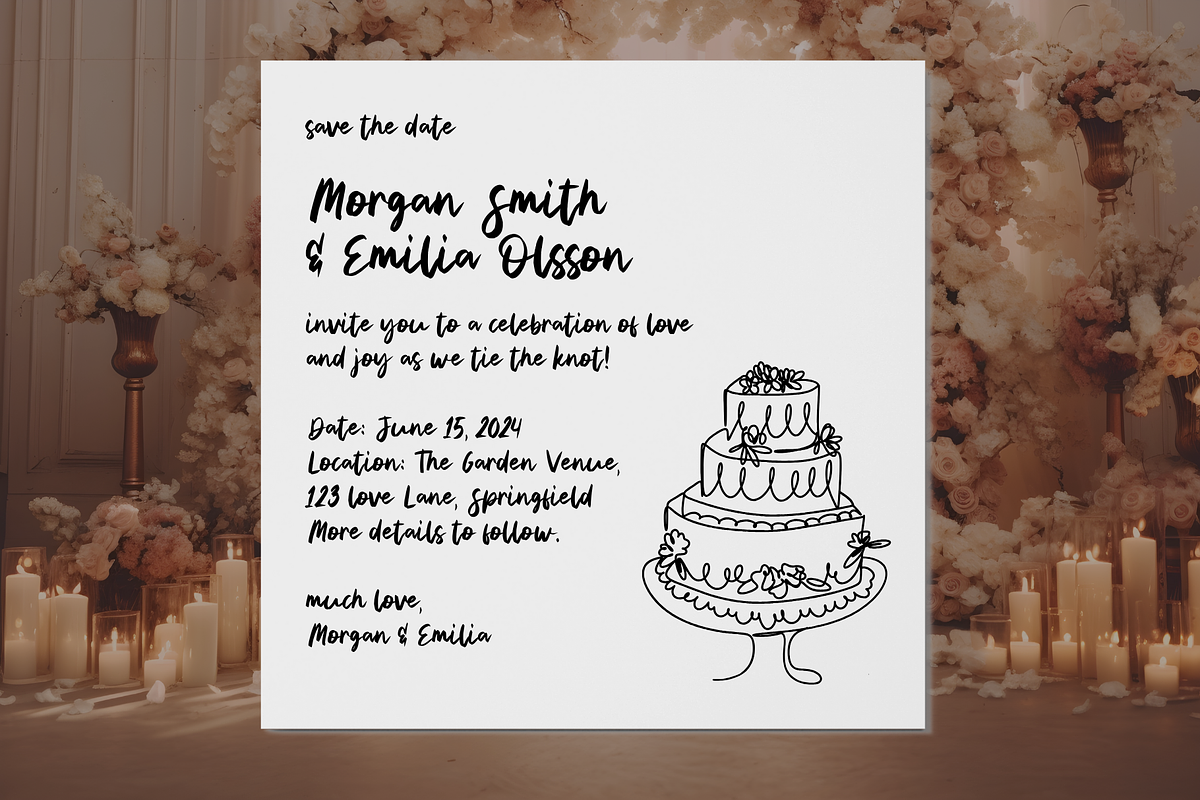 save the date
Morgan Smith
& Emilia Olsson
invite you to a celebration of love
and joy as we tie the knot!
Date: June 15, 2024
Location: The Garden Venue,
123 love Lane, Springfield
More details to follow.
much love,
Morgan & Emilia